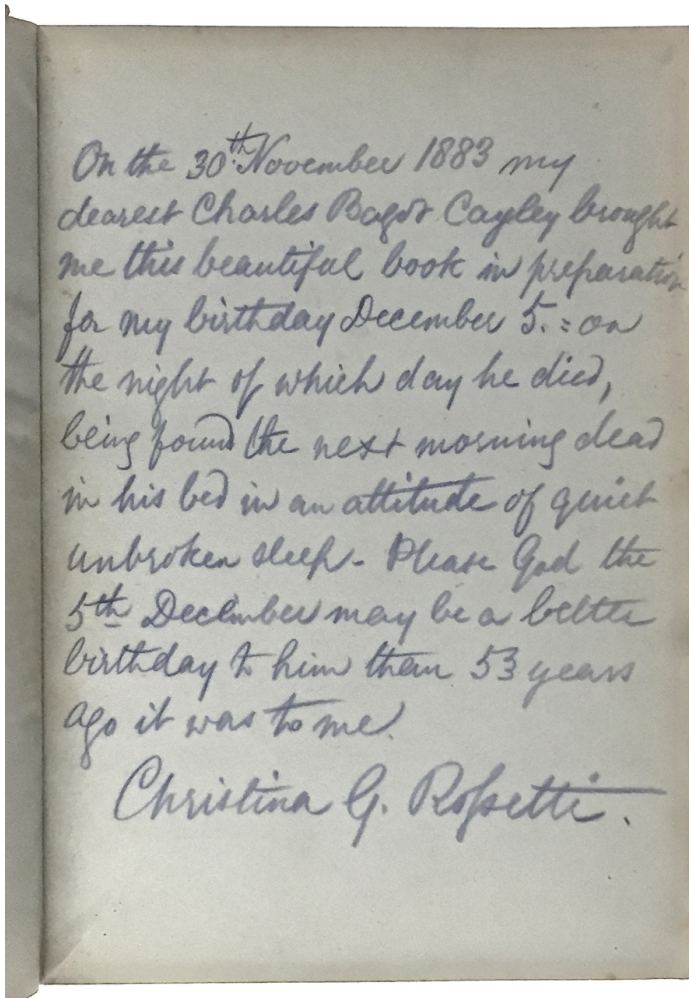 On the 30th November 1883 my
dearest Charles Bagot Cayley brought
me this beautiful book in preparation
for my birthday December 5. = on
the night of which day he died,
being found the next morning dead
in his bed in an attitude of quiet
unbroken sleep. Please God the
5th December may be a better
birthday to him than 53 years
ago it was to me.
Christina G. Rossetti.